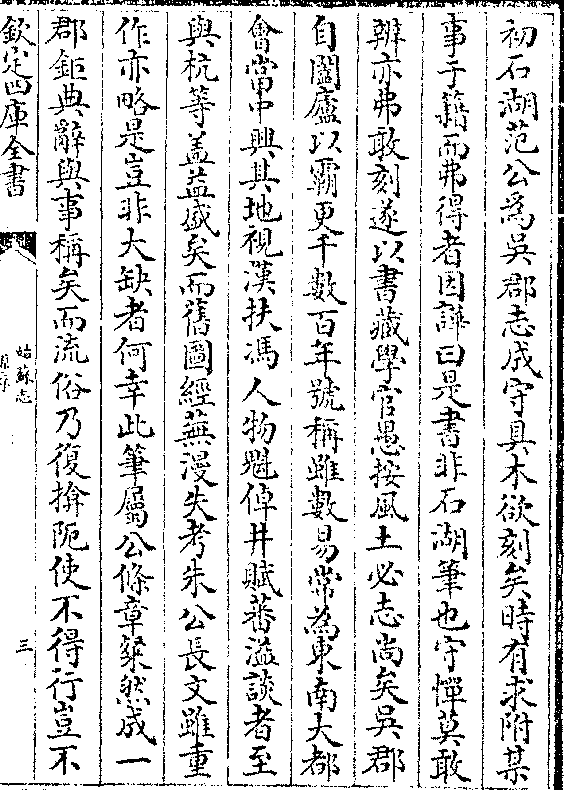 初石湖范公爲吳郡志成守具木欲刻矣時有求附某
事于籍而弗得者因譁曰是書非石湖筆也守憚莫敢
辨亦弗敢刻遂以書藏學官愚按風土必志尚矣吳郡
自闔廬以霸更千數百年號稱雖數易常為東南大都
會當中興其地視漢扶馮人物魁倬井賦蕃溢談者至
與杭等盖益盛矣而舊圖經蕪漫失考朱公長文雖重
作亦略是豈非大缺者何幸此筆屬公條章粲然成一
郡鉅典辭與事稱矣而流俗乃復揜阨使不得行豈不
欽定四庫全書
姑蘇志
三